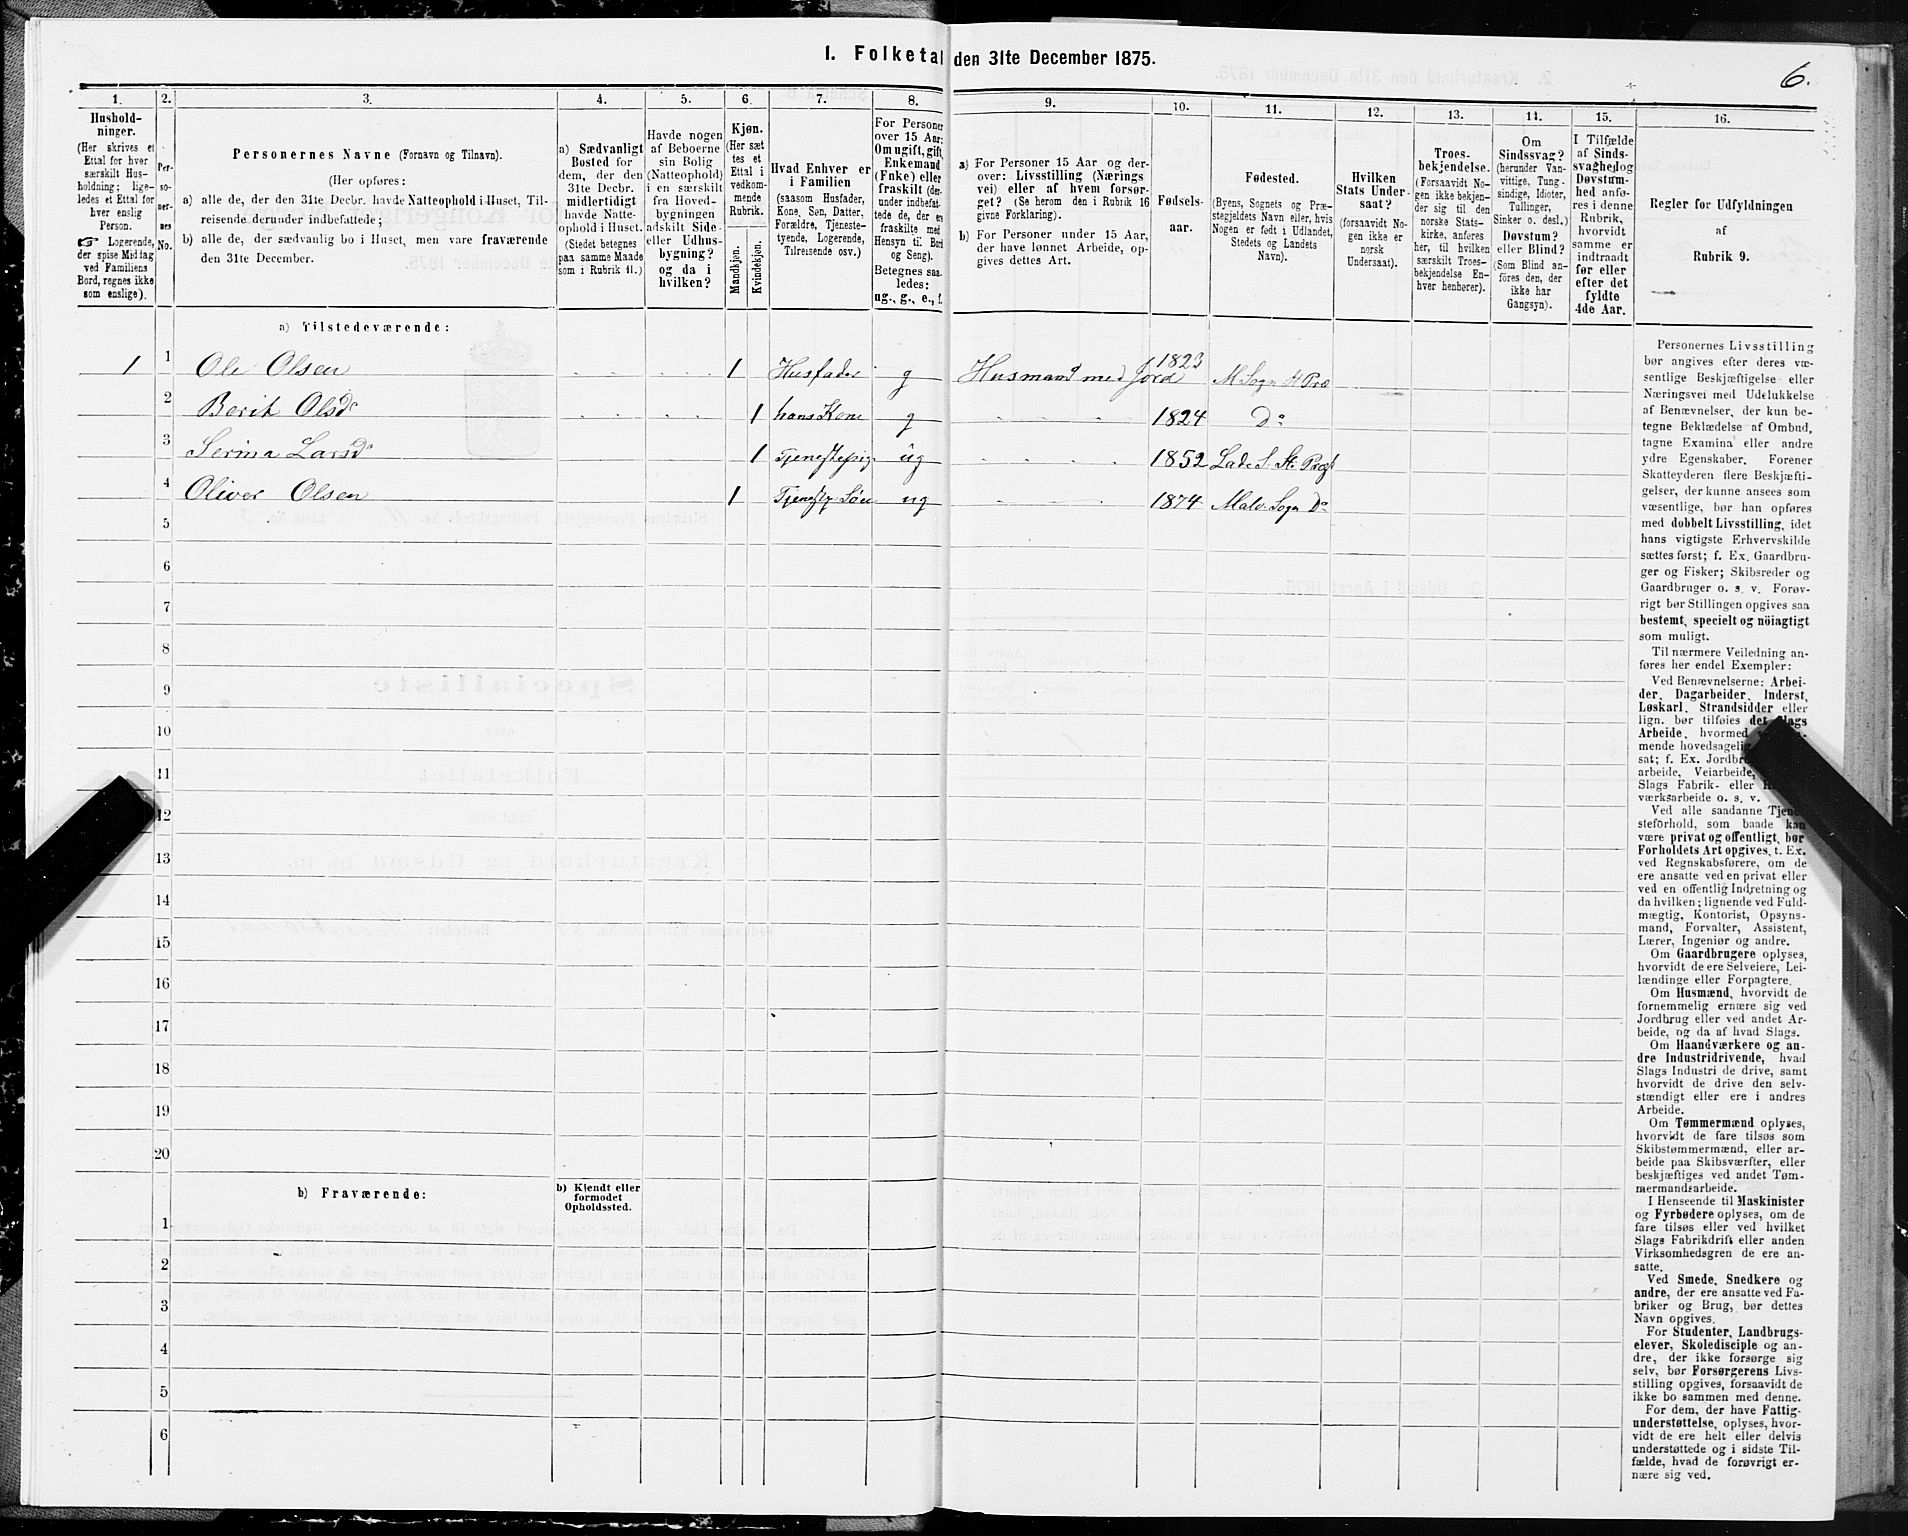 1. Folketal den 31te December 1875.
6.
1.
2.
3.
4.
5.
6.
7.
8.
9.
10.
11.
12.
13.
14.
15.
16.
Hushold-
ninger.
(Her skrives et
Ettal for hver
særskilt Hus-
holdning; lige-
ledes et Ettal for
hver enslig
Person.
☞ Logerende,
der spise Middag
ved Familiens
Bord, regnes ikke
som enslige).
Per-
so-
ner-
nes
No.
Personernes Navne (Fornavn og Tilnavn).
(Her opføres:
a) alle de, der den 31te Decbr. havde Natteophold i Huset, Til-
reisende derunder indbefattede;
b) alle de, der sædvanlig bo i Huset, men vare fraværende
den 31te December.
a) Sædvanligt
Bosted for
dem, der den
31te Decbr.
midlertidigt
havde Natte-
ophold i Huset.
(Stedet betegnes
paa samme Maade
som i Rubrik 11.)
Havde nogen
af Beboerne
sin Bolig
(Natteophold)
i en særskilt
fra Hoved-
bygningen
adskilt Side-
eller Udhus-
bygning?
og da i
hvilken?
Kjøn.
(Her sæt
tes et
Ettal i
vedkom-
mende
Rubrik.
Mandkjøn.
Kvindekjøn.
Hvad Enhver er
i Familien
(saasom Husfader,
Kone, Søn, Datter,
Forældre, Tjeneste-
tyende, Logerende,
Tilreisende osv.)
For Personer
over 15 Aar:
Om ugift, gift,
Enkemand
(Enke) eller
fraskilt (der-
under indbefat-
tede de, der ere
fraskilte med
Hensyn til Bord
og Seng).
Betegnes saa-
ledes:
ug., g., e., f.
a) For Personer 15 Aar og der-
over: Livsstilling (Nærings
vei) eller af hvem forsør-
get? (Se herom den i Rubrik 16
givne Forklaring).
b) For Personer under 15 Aar,
der have lønnet Arbeide, op-
gives dettes Art.
Fødsels-
aar.
Fødested.
(Byens, Sognets og Præ-
stegjeldets Navn eller, hvis
Nogen er født i Udlandet,
Stedets og Landets
Navn).
Hvilken
Stats Under-
saat?
(forsaavidt No-
gen ikke er
norsk
Undersaat).
Troes-
bekjendelse.
(Forsaavidt No-
gen ikke bekjen-
der sig til den
norske Stats-
kirke, anføres
her, til hvilken
særskilt Troes-
bekjendelse En-
hver henhører).
Om
Sindssvag?
(herunder Van-
vittige, Tung-
sindige, Idioter,
Tullinger,
Sinker o. desl.)
Døvstum?
eller Blind?
(Som Blind an-
føres den, der
ikke har
Gangsyn).
I Tilfælde
af Sinds-
svaghed og
Døvstum-
hed anfø-
res i denne
Rubrik,
hvorvidt
samme er
indtraadt
før eller
efter det
fyldte
4de Aar.
Regler for Udfyldningen
af
Rubrik 9.
a) Tilstedeværende:
1 1 Ole Olsen 1 Husfader g Husmand med Jord 1823 M Sogn St Præ
2 Berit Olsdr 1 hans Kone g 1824 Do
3 Serina Larsdr 1 Tjenestepig ug 1852 Lade S. St. Præst
4 Oliver Olsen 1 Tjenestp Søn ug 1874 Malv. Sogn Do
5
6
7
8
9
10
11
12
13
14
15
16
17
18
19
20
b) Fraværende:
b) Kjendt eller
formodet
Opholdssted.
1
2
3
4
5
6
Personernes Livsstilling
bør angives efter deres væ-
sentlige Beskjæftigelse eller
Næringsvei med Udelukkelse
af Benævnelser, der kun be-
tegne Beklædelse af Ombud,
tagne Examina eller andre
ydre Egenskaber. Forener
Skatteyderen flere Beskjæfti-
gelser, der kunne ansees som
væsentlige, bør han opføres
med dobbelt Livsstilling, idet
hans vigtigste Erhvervskilde
sættes først; f. Ex. Gaardbru-
ger og Fisker; Skibsreder og
Gaardbruger o. s. v. Forøv-
rigt bør Stillingen opgives saa
bestemt, specielt og nöiagtigt
som muligt.
Til nærmere Veiledning an-
føres her endel Exempler:
Ved Benævnelserne: Arbei-
der, Dagarbeider, Inderst,
Løskarl, Strandsidder eller
lign. bør tilføies det Slags
Arbeide, hvormed
mende hovedsagelig
sat; f. Ex. Jordbr
arbeide, Veiarbeide,
Slags Fabrik- eller
værksarbeide o. s. v.
Ved alle saadanne Tjene-
steforhold, som baade kan
være privat og offentligt, bør
Forholdets Art opgives, t. Ex.
ved Regnskabsførere, om de
ere ansatte ved en privat eller
ved en offentlig Indretning og
da hvilken; lignende ved Fuld-
mægtig, Kontorist, Opsyns-
mand, Forvalter, Assistent,
Lærer, Ingeniør og andre.
Om Gaardbrugere oplyses,
hvorvidt de ere Selveiere, Lei-
lændinge eller Forpagtere.
Om Husmænd, hvorvidt de
fornemmelig ernære sig ved
Jordbrug eller ved andet Ar-
beide, og da af hvad Slags.
Om Haandværkere og an-
dre Industridrivende, hvad
Slags Industri de drive, samt
hvorvidt de drive den selv-
stændigt eller ere i andres
Arbeide.
Om Tømmermænd oplyses,
hvorvidt de fare tilsøs som
Skibstømmermænd, eller ar-
beide paa Skibsværfter, eller
beskjæftiges ved andet Tøm-
mermandsarbeide.
I Henseende til Maskinister
og Fyrbødere oplyses, om de
fare tilsøs eller ved hvilket
Slags Fabrikdrift eller anden
Virksomhedsgren de ere an-
satte.
Ved Smede, Snedkere og
andre, der ere ansatte ved Fa-
briker og Brug, bør dettes
Navn opgives.
For Studenter, Landbrugs-
elever, Skoledisciple og an-
dre, der ikke forsørge sig
selv, bør Forsørgerens Livs-
stilling opgives, forsaavidt de
ikke bo sammen med denne.
For dem, der have Fattig-
understøttelse, oplyses, hvor-
vidt de ere helt eller delvis
understøttede og i sidste Til-
fælde, hvad de forøvrigt er-
nære sig ved.